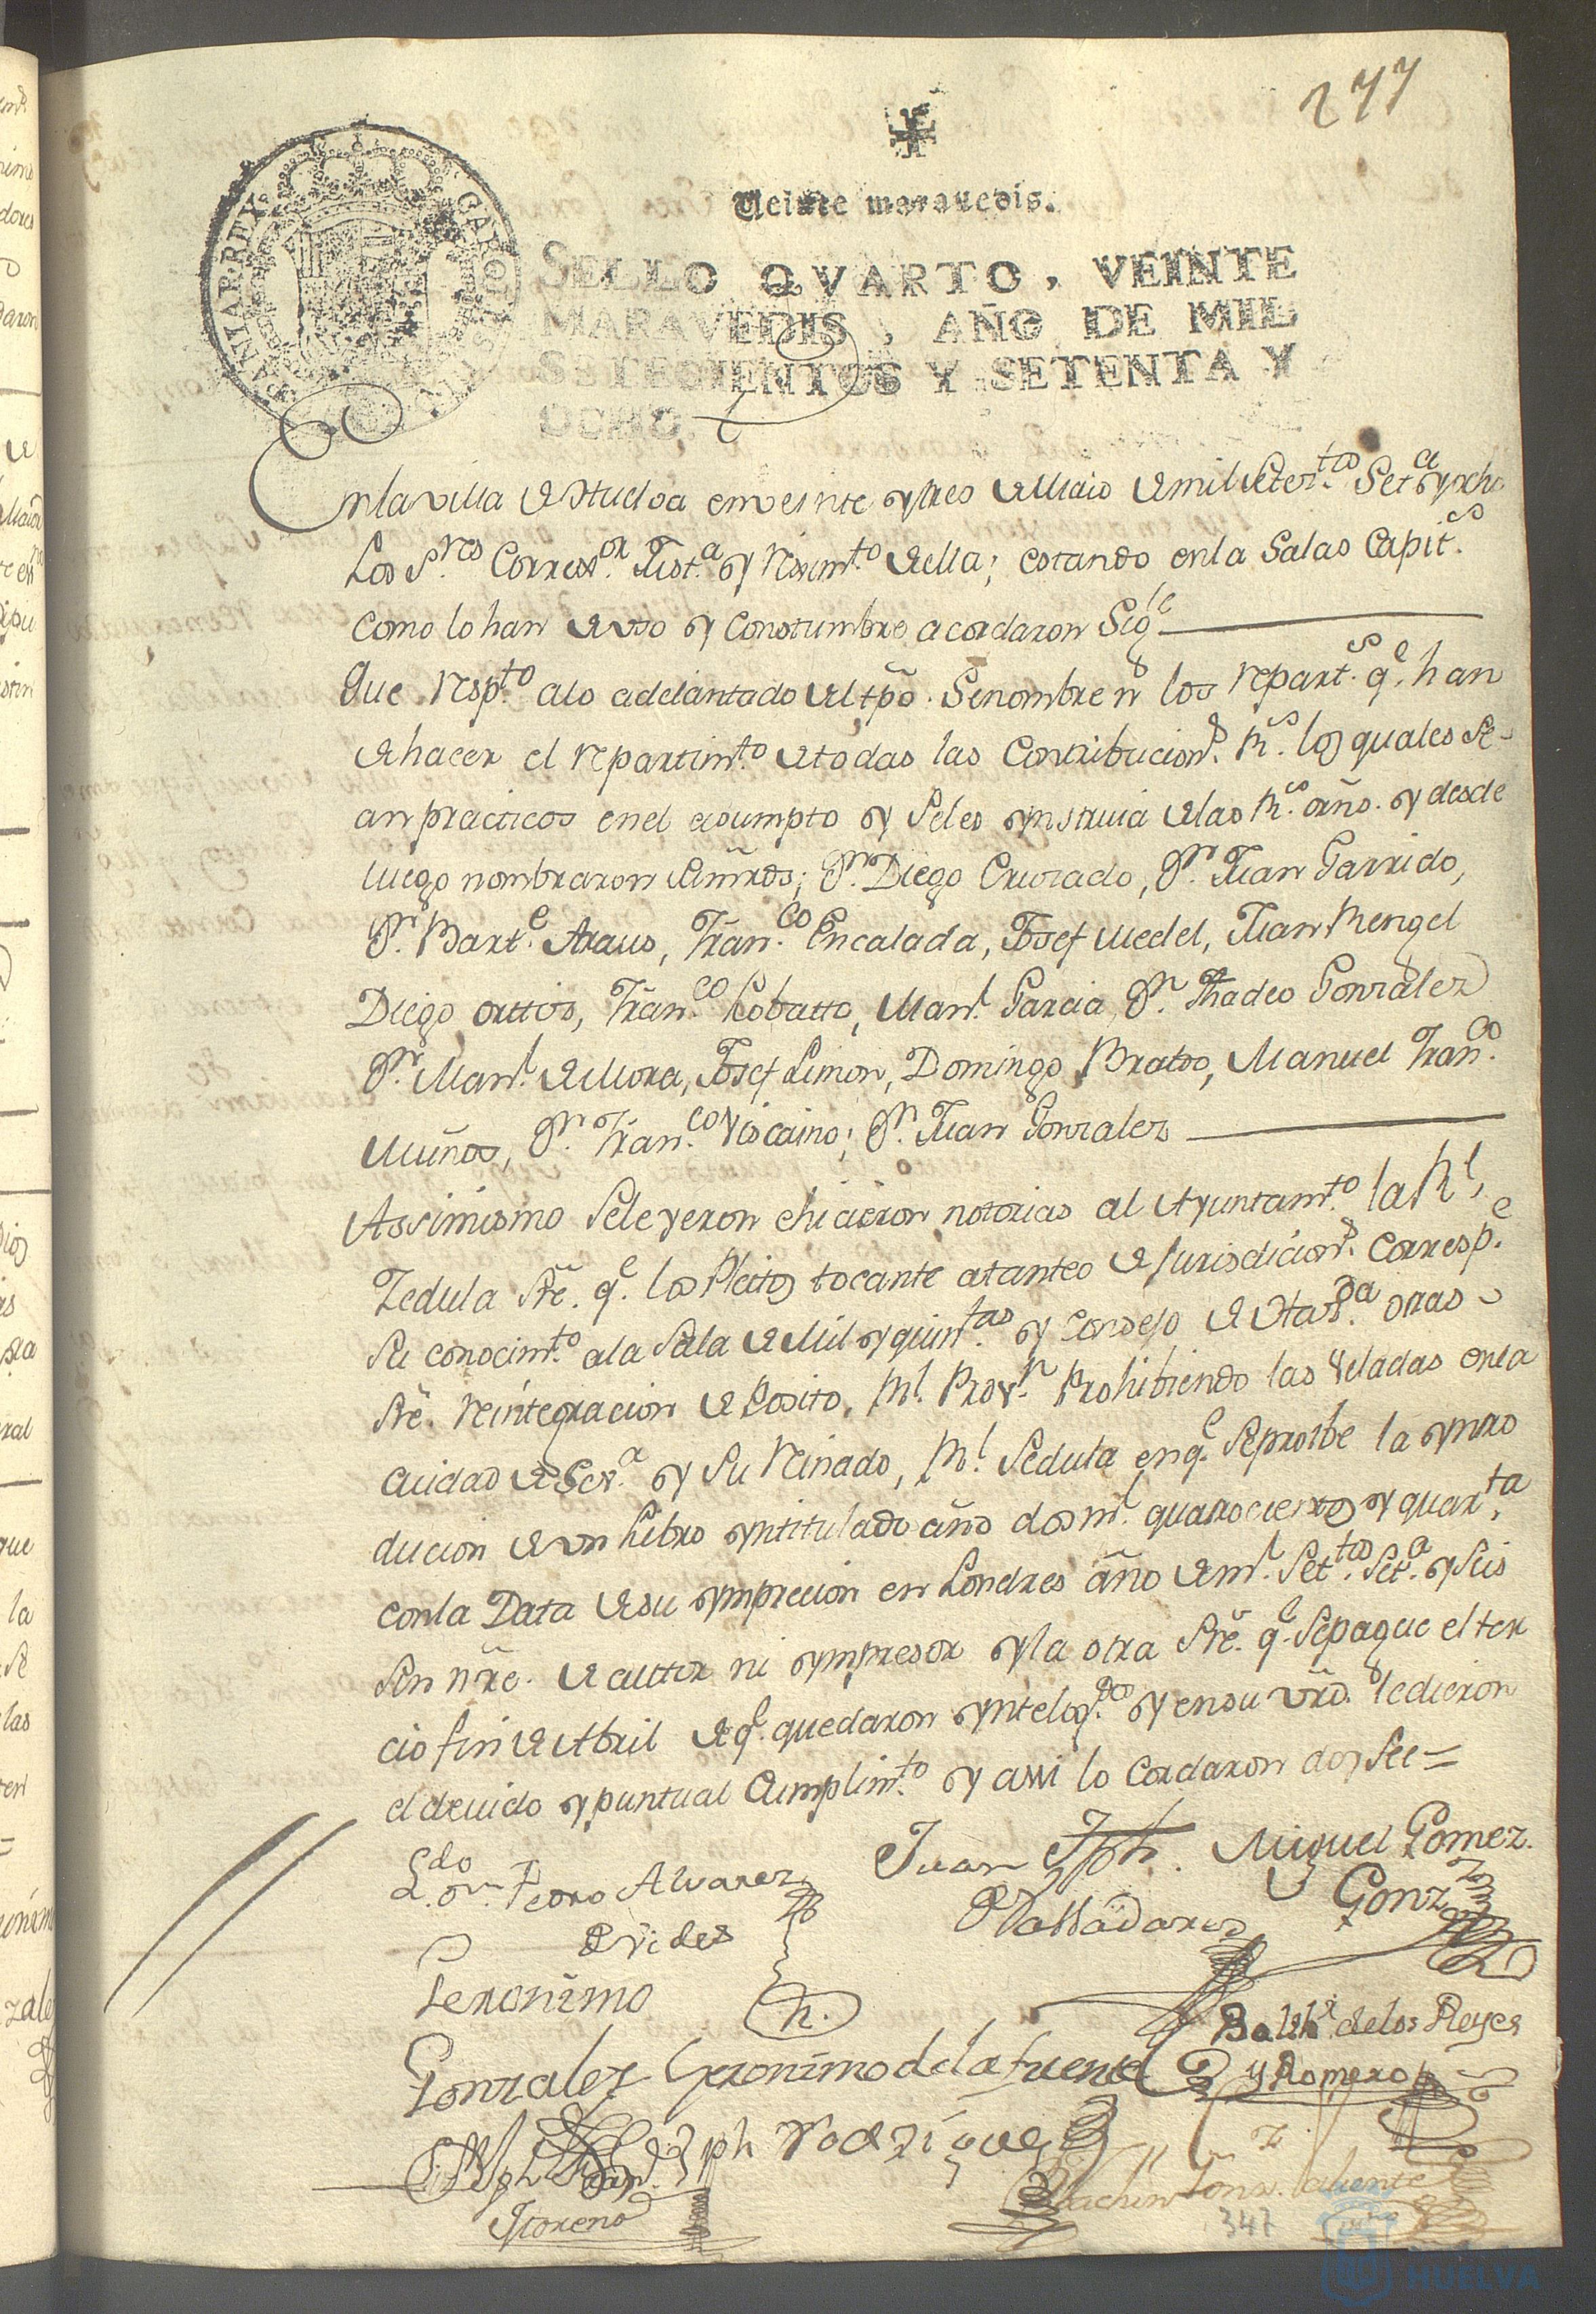 277
Veinte maravedis.
SELLO QVARTO, VEINTE
MARAVEDIS, AÑO DE MIL
SETECIENTOS Y SETENTA Y
OCHO.
En la villa de Huelva en veinte y tres de Maio de mil setez.tos Set.a y ocho
Los S.res Correx.or Just.a y Rexim.to de ella; estando en la Salas Capit.s
como lo han de vso y Constumbre acordaron Sig.te
Que resp.to a lo adelantado del tpõ. Se nombren los repart.s q.e han
de hacer el repartim.to de todas las Contribucion.s R.s los quales se-
an practicos en el asumpto y Se les ynstruia de las R.s orñs. y desde
luego nombraron Sus mrds; D.n Diego Cruzado, D.n Juan Garrido,
D.n Bart.e Araus, Fran.co Encalada, Josef Medel, Juan Rengel
Diego orttis, Fran.co Lobatto, Man.l Garcia, D.n Thadeo Gonzalez
D.n Man.l de Mora, Josef Limon, Domingo Prado, Manuel Fran.co
Muños, D.n Fran.co Viscaino; D.n Juan Gonzalez
Assimismo Se leyeron e hicieron notorias al Ayuntam.to la R.l
Zedula Sre. q.e los Pleitos tocante a tanteo de Jurisdicion.s corresp.e
Su conocim.to a la Sala de Mil y quin.tas y Consejo de Haz.da otras
Sre. reintegracion de Posito, R.l Prov.n Prohibiendo las Veladas en la
Ciudad de Sev.a y Su Reinado, R.l Sedula en q.e Se proibe la yntro
ducion de vn Libro yntitulado año dos m.l quatrocientos y quar.ta
con la Data de su ymprecion en Londres año de m.l Set.tos Set.a y Seis
Sin nre. de auttor ni ympresor y la otra Sre. q.e Se pague el ter
cio fin de Abril de q.e quedaron yntelig.dos y en su vrd. le dieron
el devido y puntual Cumplim.to y assi lo Cordaron doy Fee=
L.do D.n Pedro Alvarez
Juan Jph.
Miguel Gomez.
Valladares
Gonz
Geronimo
Gonzalez
Geronimo de la Fuente
Balth.r de los Reyes
y Romero
Joseph Rodriguez
Moreno
347
HUELVA